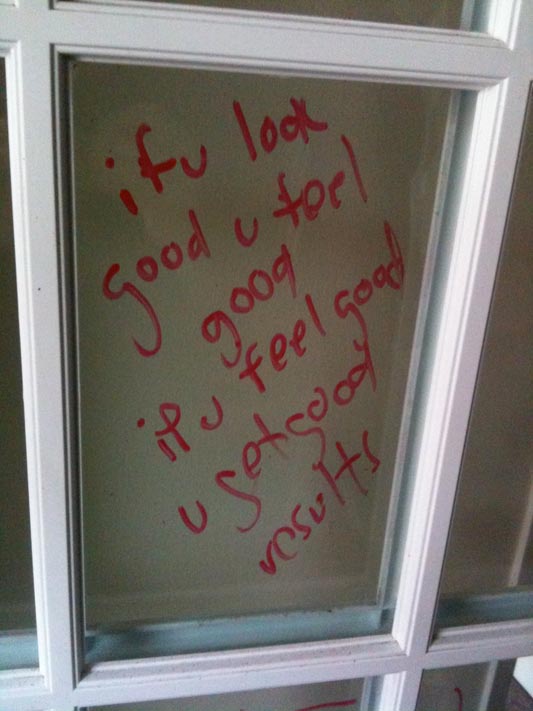 if u look
good u feel
good
if u feel good
u get good
results